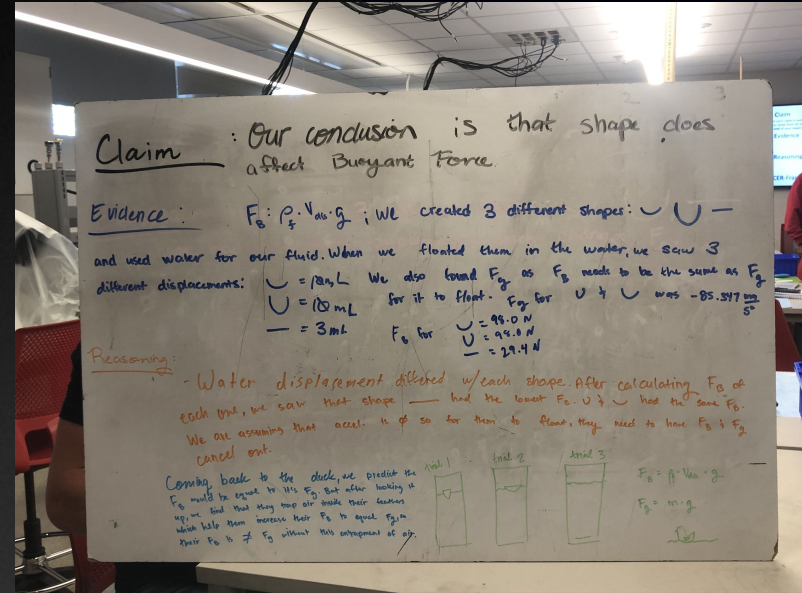 Claim : Our conclusion is that shape does
affect Buoyant Force.
Evidence : F_B : ρ_f · V_dis · g ; We created 3 different shapes: ⌣ U —
and used water for our fluid. When we floated them in the water, we saw 3
different displacements: ⌣ = 10 mL We also found F_g as F_B needs to be the same as F_g
U = 10 mL for it to float. F_g for U & ⌣ was -85.347
— = 3 mL F_B for ⌣ = 98.0 N
U = 98.0 N
— = 29.4 N
Reasoning:
- Water displacement differed w/each shape. After calculating F_B of
each one, we saw that shape — had the lowest F_B. U & ⌣ had the same F_B.
We are assuming that accel. is ø so for them to float, they need to have F_B & F_g
cancel out.
Coming back to the duck, we predict the
F_B would be equal to it's F_g. But after looking it
up, we find that they trap air inside their feathers
which help them increase their F_B to equal F_g,
their F_B is ≠ F_g without this entrapment of air.
trial 1 trial 2 trial 3
F_B = ρ · V_dis · g
F_g = m · g
Claim
Evidence
Reasoning